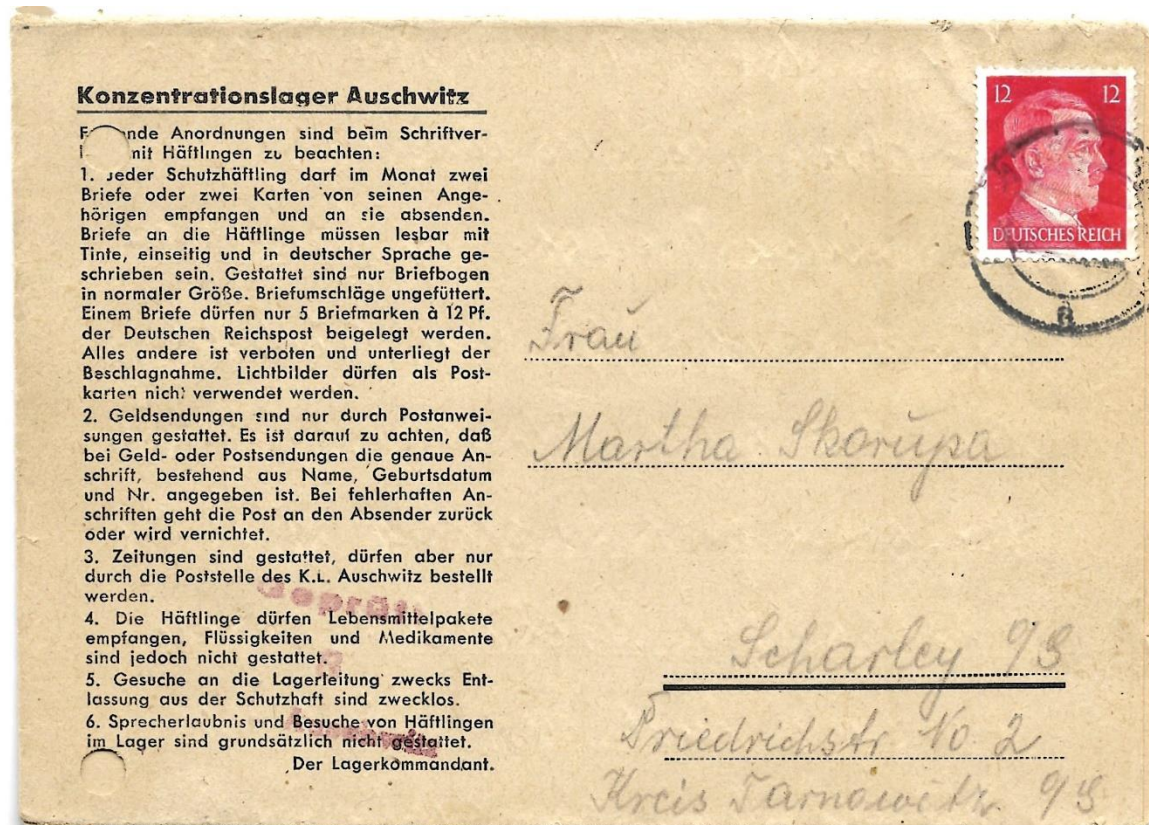 Konzentrationslager Auschwitz
nde Anordnungen sind beim Schriftver-
mit Häftlingen zu beachten:
1. Jeder Schutzhäftling darf im Monat zwei
Briefe oder zwei Karten von seinen Ange-
hörigen empfangen und an sie absenden.
Briefe an die Häftlinge müssen lesbar mit
Tinte, einseitig und in deutscher Sprache ge-
schrieben sein. Gestattet sind nur Briefbogen
in normaler Größe. Briefumschläge ungefüttert.
Einem Briefe dürfen nur 5 Briefmarken à 12 Pf.
der Deutschen Reichspost beigelegt werden.
Alles andere ist verboten und unterliegt der
Beschlagnahme. Lichtbilder dürfen als Post-
karten nicht verwendet werden.
2. Geldsendungen sind nur durch Postanwei-
sungen gestattet. Es ist darauf zu achten, daß
bei Geld- oder Postsendungen die genaue An-
schrift, bestehend aus Name, Geburtsdatum
und Nr. angegeben ist. Bei fehlerhaften An-
schriften geht die Post an den Absender zurück
oder wird vernichtet.
3. Zeitungen sind gestattet, dürfen aber nur
durch die Poststelle des K.L. Auschwitz bestellt
werden.
4. Die Häftlinge dürfen Lebensmittelpakete
empfangen, Flüssigkeiten und Medikamente
sind jedoch nicht gestattet.
5. Gesuche an die Lagerleitung zwecks Ent-
lassung aus der Schutzhaft sind zwecklos.
6. Sprecherlaubnis und Besuche von Häftlingen
im Lager sind grundsätzlich nicht gestattet.
Der Lagerkommandant.
12 12
DEUTSCHES REICH
Frau
Martha Skorupa
Scharley O/S
Friedrichstr No. 2
Kreis Tarnowitz O/S